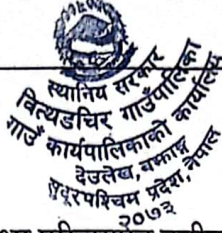 स्थानिय सरकार
वित्थडचिर गाउँपालिका
गाउँ कार्यपालिकाको कार्यालय
देउलेख, बझाङ्ग
सुदूरपश्चिम प्रदेश, नेपाल
२०७३